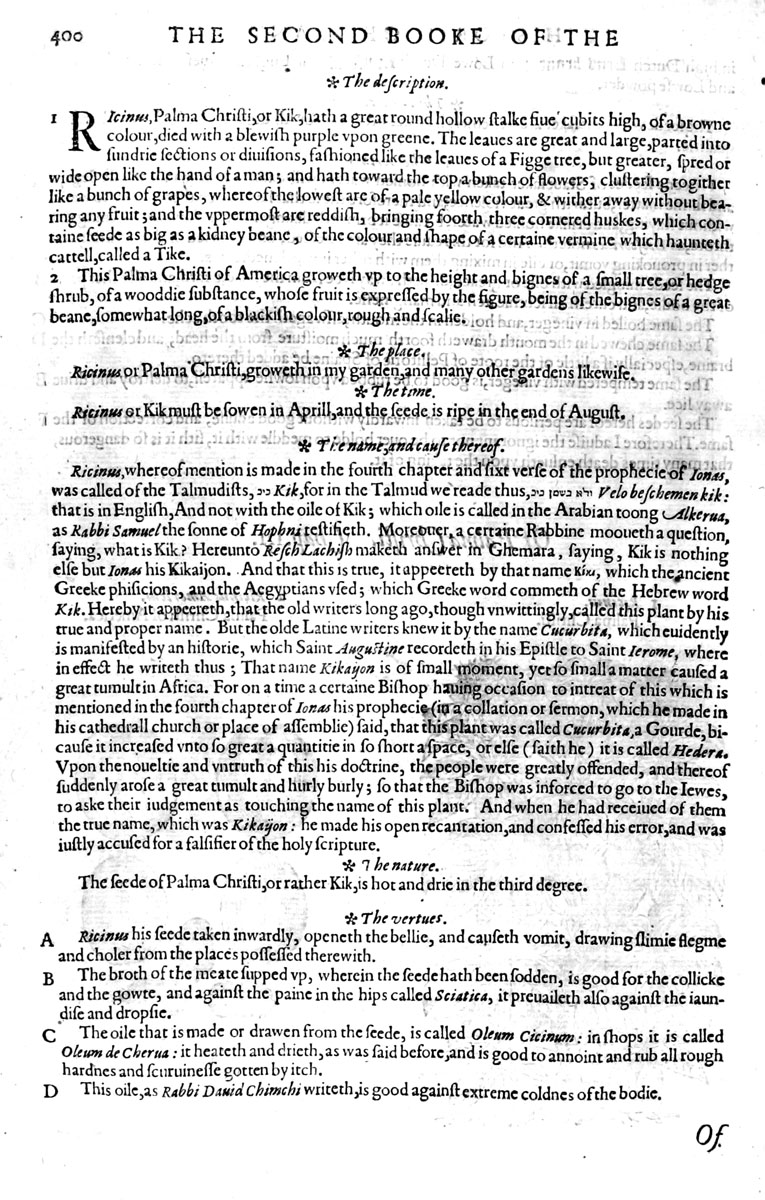 400 THE SECOND BOOKE OF THE
✻ The deſcription.
1 RIcinus, Palma Chriſti, or Kik, hath a great round hollow ſtalke fiue cubits high, of a browne
colour, died with a blewiſh purple vpon greene. The leaues are great and large, parted into
ſundrie ſections or diuiſions, faſhioned like the leaues of a Figge tree, but greater, ſpred or
wide open like the hand of a man; and hath toward the top a bunch of flowers, cluſtering togither
like a bunch of grapes, whereof the loweſt are of a pale yellow colour, & wither away without bea-
ring any fruit; and the vppermoſt are reddiſh, bringing foorth three cornered huskes, which con-
taine ſeede as big as a kidney beane, of the colour and ſhape of a certaine vermine which haunteth
cattell, called a Tike.
2 This Palma Chriſti of America groweth vp to the height and bignes of a ſmall tree, or hedge
ſhrub, of a wooddie ſubſtance, whoſe fruit is expreſſed by the figure, being of the bignes of a great
beane, ſomewhat long, of a blackiſh colour, rough and ſcalie.
✻ The place.
Ricinus or Palma Chriſti, groweth in my garden, and many other gardens likewiſe.
✻ The time.
Ricinus or Kik muſt be ſowen in Aprill, and the ſeede is ripe in the end of Auguſt.
✻ The name, and cauſe thereof.
Ricinus, whereof mention is made in the fourth chapter and ſixt verſe of the prophecie of Ionas,
was called of the Talmudiſts, קיק Kik, for in the Talmud we reade thus, ולא בשמן קיק Velo beſchemen kik:
that is in Engliſh, And not with the oile of Kik; which oile is called in the Arabian toong Alkerua,
as Rabbi Samuel the ſonne of Hophni teſtifieth. Moreouer, a certaine Rabbine mooueth a queſtion,
ſaying, what is Kik? Hereunto Reſch Lachiſh maketh anſwer in Ghemara, ſaying, Kik is nothing
elſe but Ionas his Kikaijon. And that this is true, it appeereth by that name Κίκι, which the ancient
Greeke phiſicions, and the Aegyptians vſed; which Greeke word commeth of the Hebrew word
Kik. Hereby it appeereth, that the old writers long ago, though vnwittingly, called this plant by his
true and proper name. But the olde Latine writers knew it by the name Cucurbita, which euidently
is manifeſted by an hiſtorie, which Saint Auguſtine recordeth in his Epiſtle to Saint Ierome, where
in effect he writeth thus; That name Kikaijon is of ſmall moment, yet ſo ſmall a matter cauſed a
great tumult in Africa. For on a time a certaine Biſhop hauing occaſion to intreat of this which is
mentioned in the fourth chapter of Ionas his prophecie (in a collation or ſermon, which he made in
his cathedrall church or place of aſſemblie) ſaid, that this plant was called Cucurbita, a Gourde, bi-
cauſe it increaſed vnto ſo great a quantitie in ſo ſhort a ſpace, or elſe (ſaith he) it is called Hedera.
Vpon the noueltie and vntruth of this his doctrine, the people were greatly offended, and thereof
ſuddenly aroſe a great tumult and hurly burly; ſo that the Biſhop was inforced to go to the Iewes,
to aske their iudgement as touching the name of this plant. And when he had receiued of them
the true name, which was Kikaijon: he made his open recantation, and confeſſed his error, and was
iuſtly accuſed for a falſifier of the holy ſcripture.
✻ The nature.
The ſeede of Palma Chriſti, or rather Kik, is hot and drie in the third degree.
✻ The vertues.
A Ricinus his ſeede taken inwardly, openeth the bellie, and cauſeth vomit, drawing ſlimie flegme
and choler from the places poſſeſſed therewith.
B The broth of the meate ſupped vp, wherein the ſeede hath been ſodden, is good for the collicke
and the gowte, and againſt the paine in the hips called Sciatica, it preuaileth alſo againſt the iaun-
diſe and dropſie.
C The oile that is made or drawen from the ſeede, is called Oleum Cicinum: in ſhops it is called
Oleum de Cherua: it heateth and drieth, as was ſaid before, and is good to annoint and rub all rough
hardnes and ſcuruineſſe gotten by itch.
D This oile, as Rabbi Dauid Chimchi writeth, is good againſt extreme coldnes of the bodie.
Of.